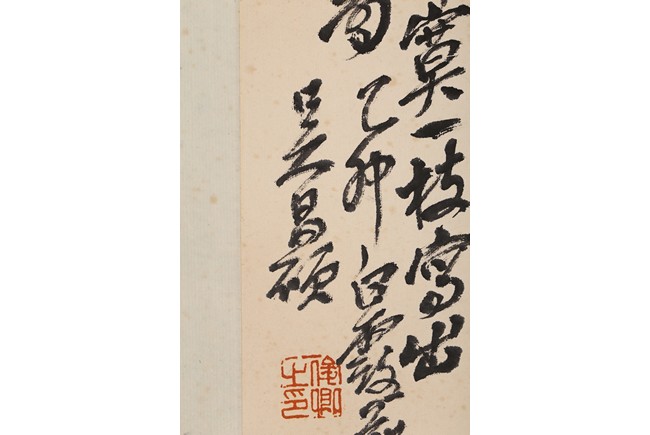 寞一枝寫出
乙卯白露
吳昌碩
俊卿之印